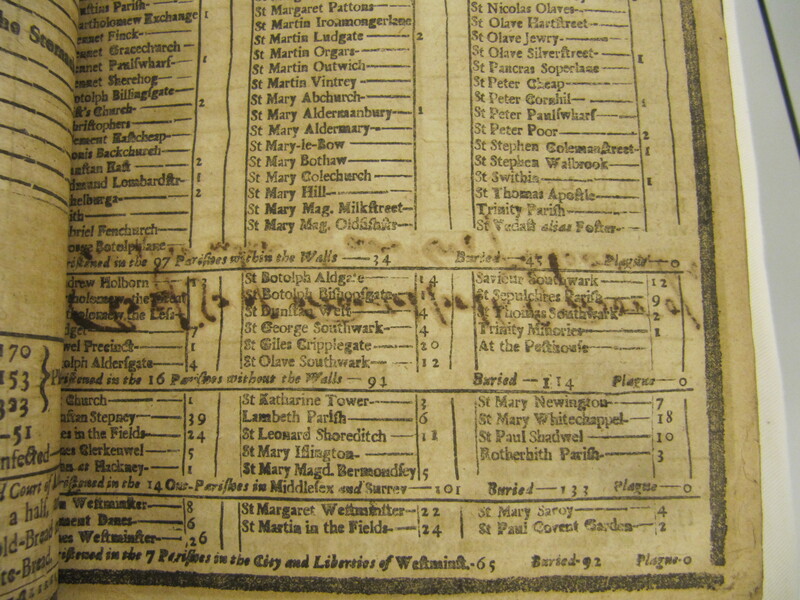 St Margaret Pattons St Nicolas Olaves
Exchange 1 St Martin Ironmongerlane St Olave Hartstreet
Finck St Martin Ludgate 2 St Olave Jewry
Gracechurch St Martin Orgars St Olave Silverstreet 1
Paulſwharf 1 St Martin Outwich St Pancras Soperlane
Sherehog St Martin Vintrey St Peter Cheap
Billingſgate St Mary Abchurch St Peter Cornhil 1
Church 2 St Mary Aldermanbury 1 St Peter Paulſwharf
St Mary Aldermary St Peter Poor 2
Eaſtcheap St Mary-le-Bow St Stephen Colemanſtreet 1
Backchurch St Mary Bothaw St Stephen Walbrook
Eaſt 2 St Mary Colechurch St Swithin 1
Lombardſtr 1 St Mary Hill St Thomas Apoſtle
2 St Mary Mag. Milkſtreet Trinity Pariſh
St Mary Mag. St Vedaſt alias Foſter
Fenchurch
Botolphlane
in the 97 Pariſhes within the Walls 34 Buried 45 Plague 0
Holborn 13 St Botolph Aldgate 14 Saviour Southwark 12
the Great St Botolph Biſhopſgate St Sepulchres Pariſh 9
the Leſs St Dunſtan Weſt 4 St Thomas Southwark 2
7 St George Southwark 4 Trinity Minories 1
Precinct 1 St Giles Cripplegate 20 At the Peſthouſe
Alderſgate 4 St Olave Southwark 12
in the 16 Pariſhes without the Walls 91 Buried 114 Plague 0
Church 1 St Katharine Tower 3 St Mary Newington 7
Stepney 39 Lambeth Pariſh 6 St Mary Whitechappel 18
in the Fields 24 St Leonard Shoreditch 11 St Paul Shadwel 10
Clerkenwel 5 St Mary Iſlington Rotherhith Pariſh 3
at Hackney 1 St Mary Magd. Bermondſey 5
in the 14 Out-Pariſhes in Middleſex and Surrey 101 Buried 133 Plague 0
Weſtminſter 8 St Margaret Weſtminſter 22 St Mary Savoy 4
Danes 6 St Martin in the Fields 24 St Paul Covent Garden 2
Weſtminſter 26
in the 7 Pariſhes in the City and Liberties of Weſtminſt. 65 Buried 92 Plague 0
170
153
323
51
Court of
a half,